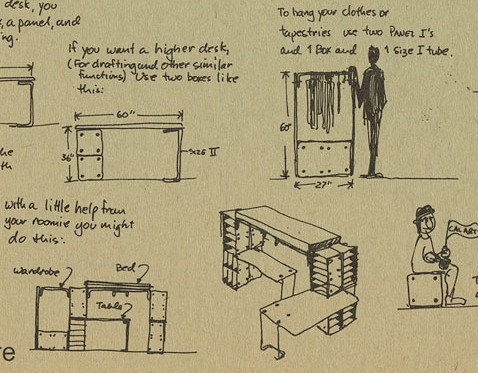 desk, you
a panel, and
ing.
If you want a higher desk,
(For drafting and other similar
functions) Use two boxes like
this:
60"
36"
SIZE II
To hang your clothes or
tapestries use two PANEL I's
and 1 Box and 1 SIZE I tube.
60"
27"
he
th
with a little help from
your roomie you might
do this:
Wardrobe
Bed
Table
CAL ARTS
re